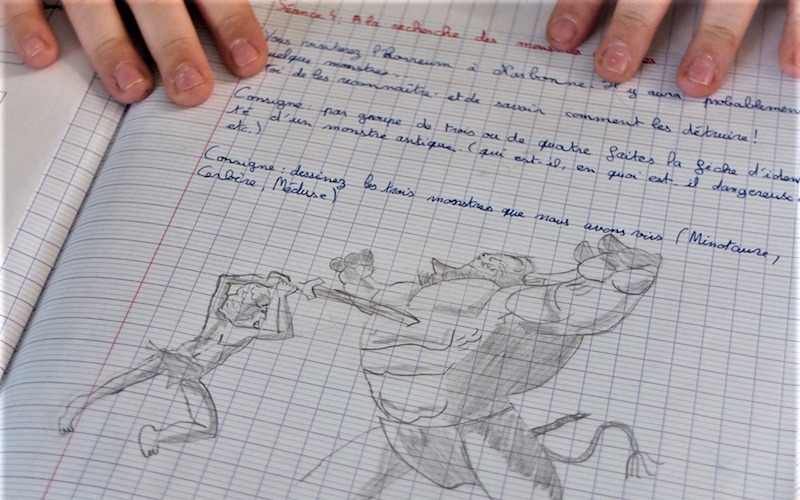 Séance 4. A la recherche des monstres
Vous visiterez l'Horreum à Narbonne. Il y aura probablement
quelque monstres.
toi de les reconnaître et de savoir comment les détruire !
Consigne : par groupe de trois ou de quatre faites la fiche d'iden
té d'un monstre antique. (qui est-il, en quoi est-il dangereuse
etc.)
Consigne : dessinez les trois monstres que nous avons vois (Minotaure,
Cerbère, Méduse)